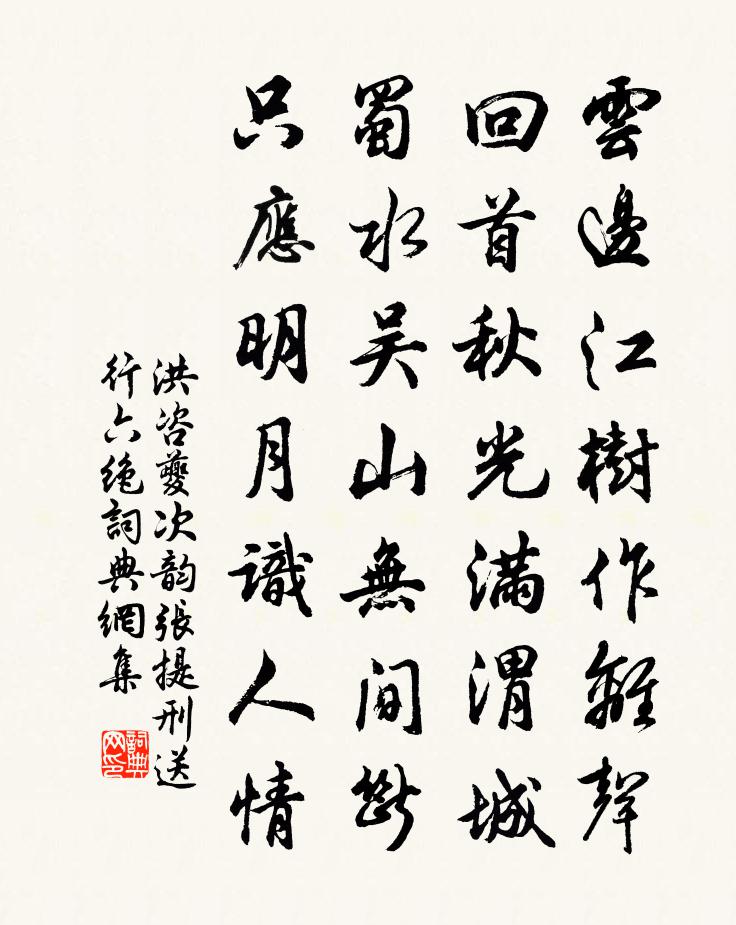 雲邊江樹作離聲
回首秋光滿渭城
蜀水吴山無間斷
只應明月識人情
洪咨夔次韵張提刑送
行六絶詞典網集
詞典网印